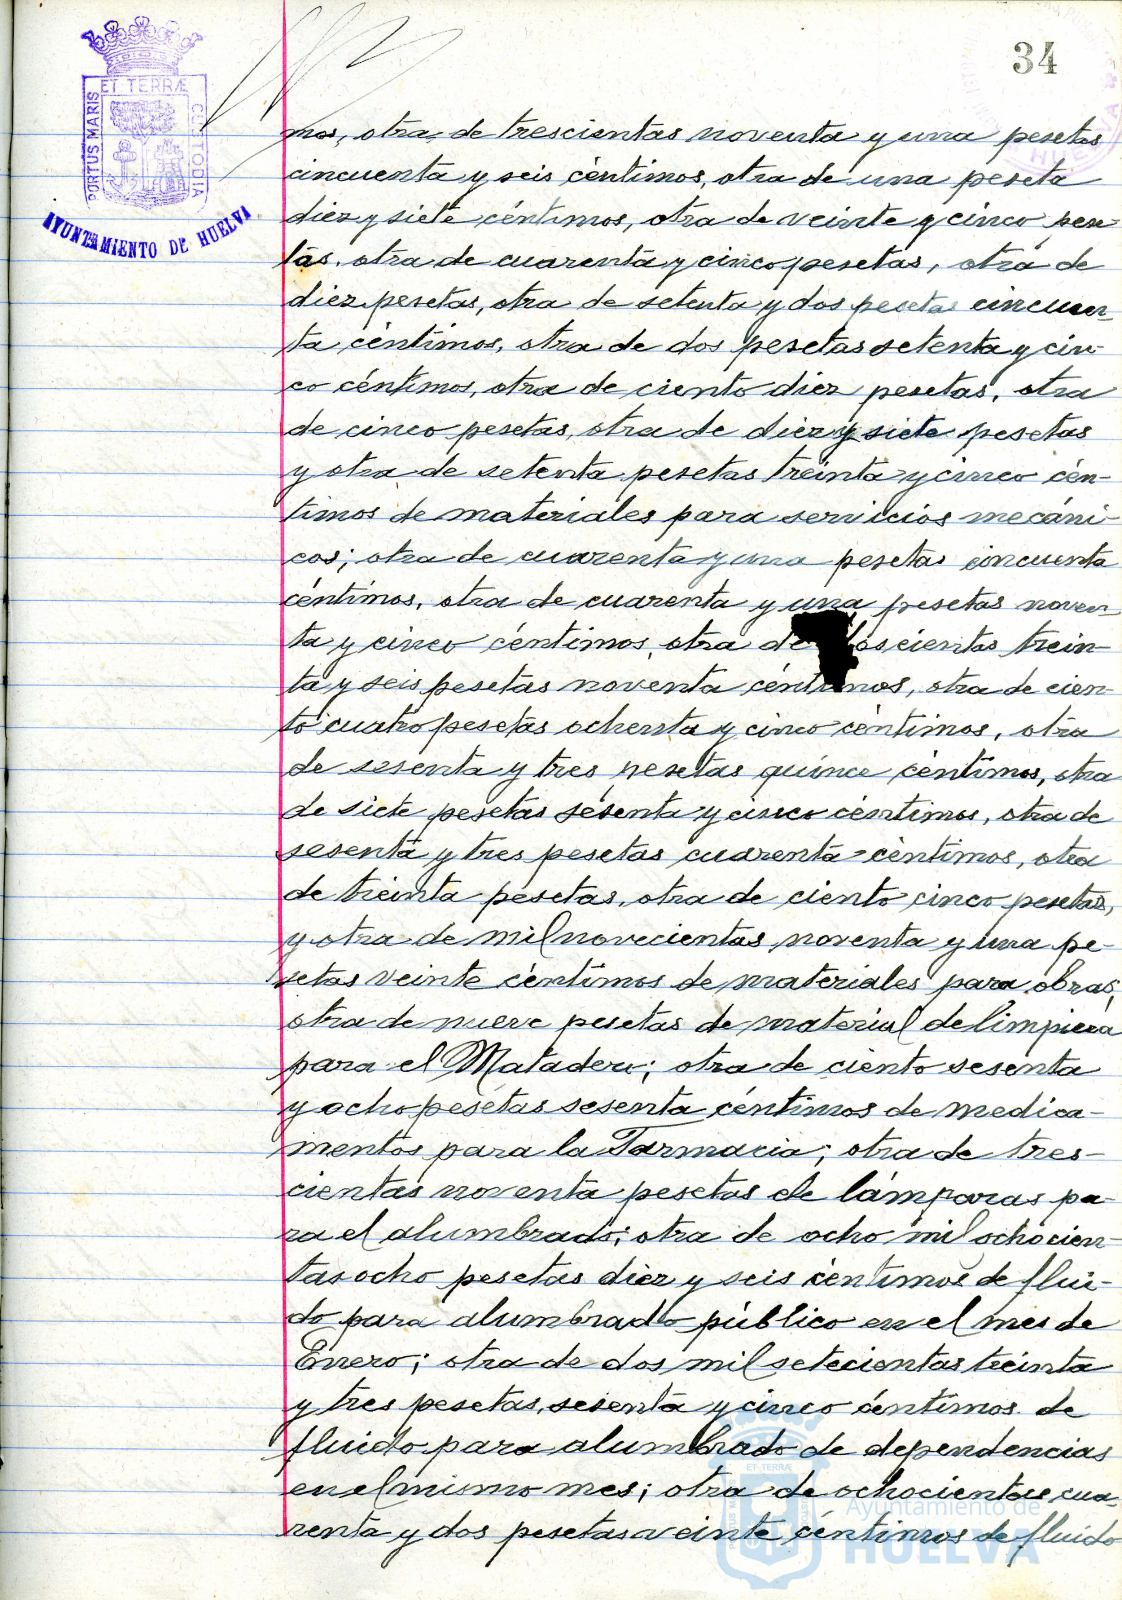 34
ET TERRÆ
PORTUS MARIS
CUSTODIA
AYUNTAMIENTO DE HUELVA
mos, otra de trescientas noventa y una pesetas
cincuenta y seis céntimos, otra de una peseta
diez y siete céntimos, otra de veinte y cinco pese-
tas, otra de cuarenta y cinco pesetas, otra de
diez pesetas, otra de setenta y dos pesetas cincuen-
ta céntimos, otra de dos pesetas setenta y cin-
co céntimos, otra de ciento diez pesetas, otra
de cinco pesetas, otra de diez y siete pesetas
y otra de setenta pesetas treinta y cinco cén-
timos de materiales para servicios mecáni-
cos; otra de cuarenta y una pesetas cincuenta
céntimos, otra de cuarenta y una pesetas noven
ta y cinco céntimos, otra de doscientas trein-
ta y seis pesetas noventa céntimos, otra de cien-
to cuatro pesetas ochenta y cinco céntimos, otra
de sesenta y tres pesetas quince céntimos, otra
de siete pesetas sesenta y cinco céntimos, otra de
sesenta y tres pesetas cuarenta céntimos, otra
de treinta pesetas, otra de ciento cinco pesetas,
y otra de mil novecientas noventa y una pe-
setas veinte céntimos de materiales para obras;
otra de nueve pesetas de material de limpieza
para el Matadero; otra de ciento sesenta
y ocho pesetas sesenta céntimos de medica-
mentos para la Farmacia; otra de tres-
cientas noventa pesetas de lámparas pa-
ra el alumbrado; otra de ocho mil ochocien-
tas ocho pesetas diez y seis céntimos de flui-
do para alumbrado público en el mes de
Enero; otra de dos mil setecientas treinta
y tres pesetas sesenta y cinco céntimos de
fluido para alumbrado de dependencias
en el mismo mes; otra de ochocientas cua-
renta y dos pesetas veinte céntimos de fluido
Ayuntamiento de
HUELVA